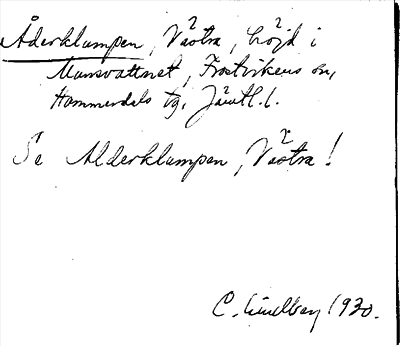 Åderklumpen, Västra, höjd i
Mansvattnet, Frostvikens sn,
Hammerdals tg. Jämtl. l.
Se Alderklumpen, Västra!
C. Lindberg 1930.